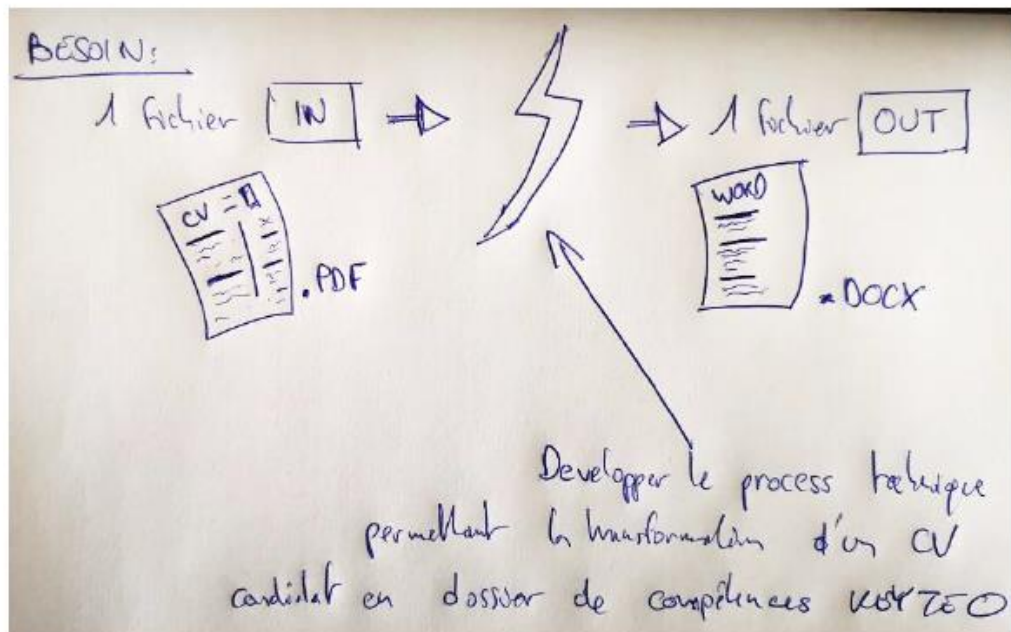 BESOIN:
1 fichier IN 1 fichier OUT
CV
WORD
.PDF
.DOCX
Developper le process technique
permettant la transformation d'un CV
candidat en dossier de compétences KEYZEO